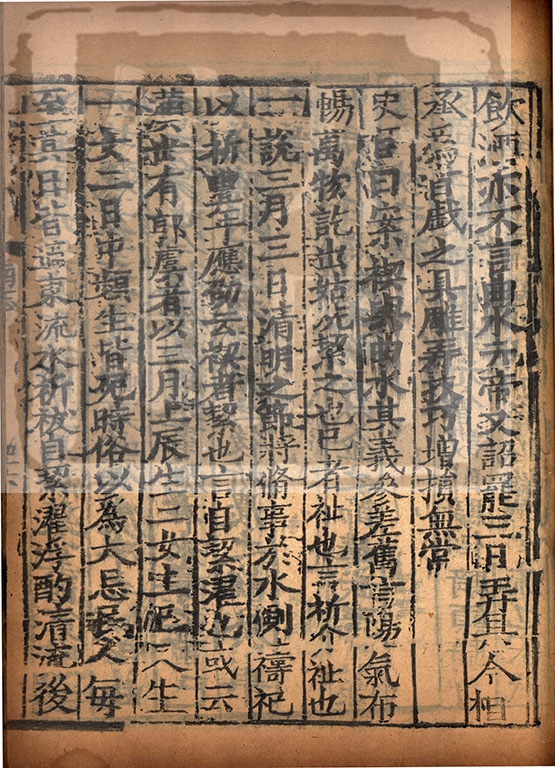 飲酒亦不言曲水元帝又詔罷三日弄具今相
承為百戲之具雕弄技巧增損無常
史臣曰案禊與曲水其義參差舊言陽氣布
暢萬物訖出姑洗絜之也巳者祉也言祈介祉也
一說三月三日清明之節將脩事於水側禱祀
以祈豐年應劭云禊者絜也言自絜濯也或云
漢世有郭虞者以三月上辰生二女上巳又生
一女二日中頻生皆死時俗以為大忌民人每
至其日皆適東流水祈祓自絜濯浮酌清流後